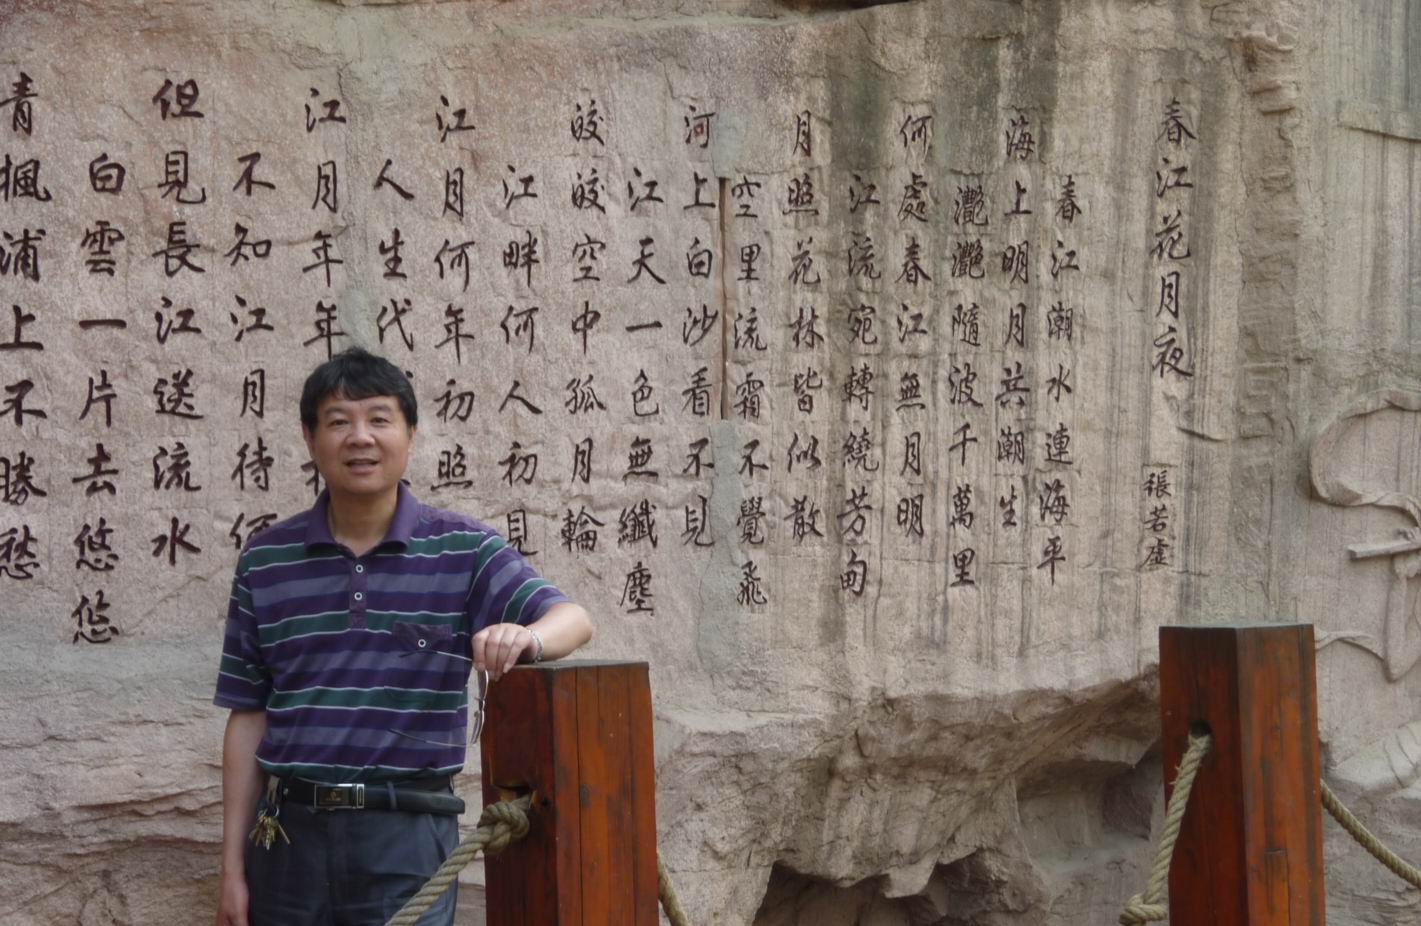 春江花月夜
張若虛
春江潮水連海平
海上明月共潮生
灧灧隨波千萬里
何處春江無月明
江流宛轉繞芳甸
月照花林皆似散
空里流霜不覺飛
河上白沙看不見
江天一色無纖塵
皎皎空中孤月輪
江畔何人初見
江月何年初照
人生代
江月年年
不知江月待何
但見長江送流水
白雲一片去悠悠
青楓浦上不勝愁